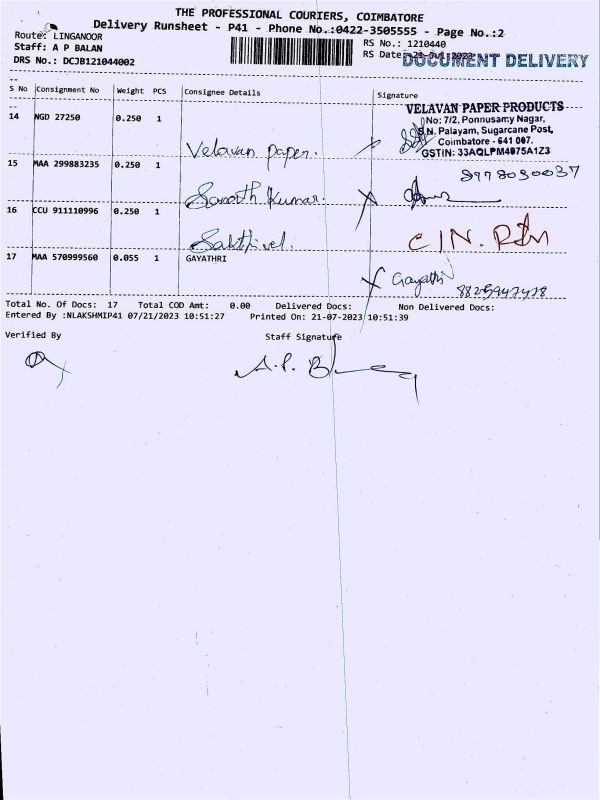 THE PROFESSIONAL COURIERS, COIMBATORE
Delivery Runsheet - P41 - Phone No.:0422-3505555 - Page No.:2
Route: LINGANOOR
RS No.: 1210440
Staff: A P BALAN
RS Date:
DOCUMENT DELIVERY
DRS No.: DCJB121044002
S No Consignment No Weight PCS Consignee Details Signature
14 NGD 27250 0.250 1 Velavan paper.
VELAVAN PAPER PRODUCTS
No: 7/2, Ponnusamy Nagar,
S.N. Palayam, Sugarcane Post,
Coimbatore - 641 007.
GSTIN: 33AQLPM4975A1Z3
15 MAA 299883235 0.250 1 Kumar.
16 CCU 911110996 0.250 1 Sakthivel. CIN.
17 MAA 570999560 0.055 1 GAYATHRI Gayathri
Total No. Of Docs: 17 Total COD Amt: 0.00 Delivered Docs: Non Delivered Docs:
Entered By :NLAKSHMIP41 07/21/2023 10:51:27 Printed On: 21-07-2023 10:51:39
Verified By Staff Signature
A.P.